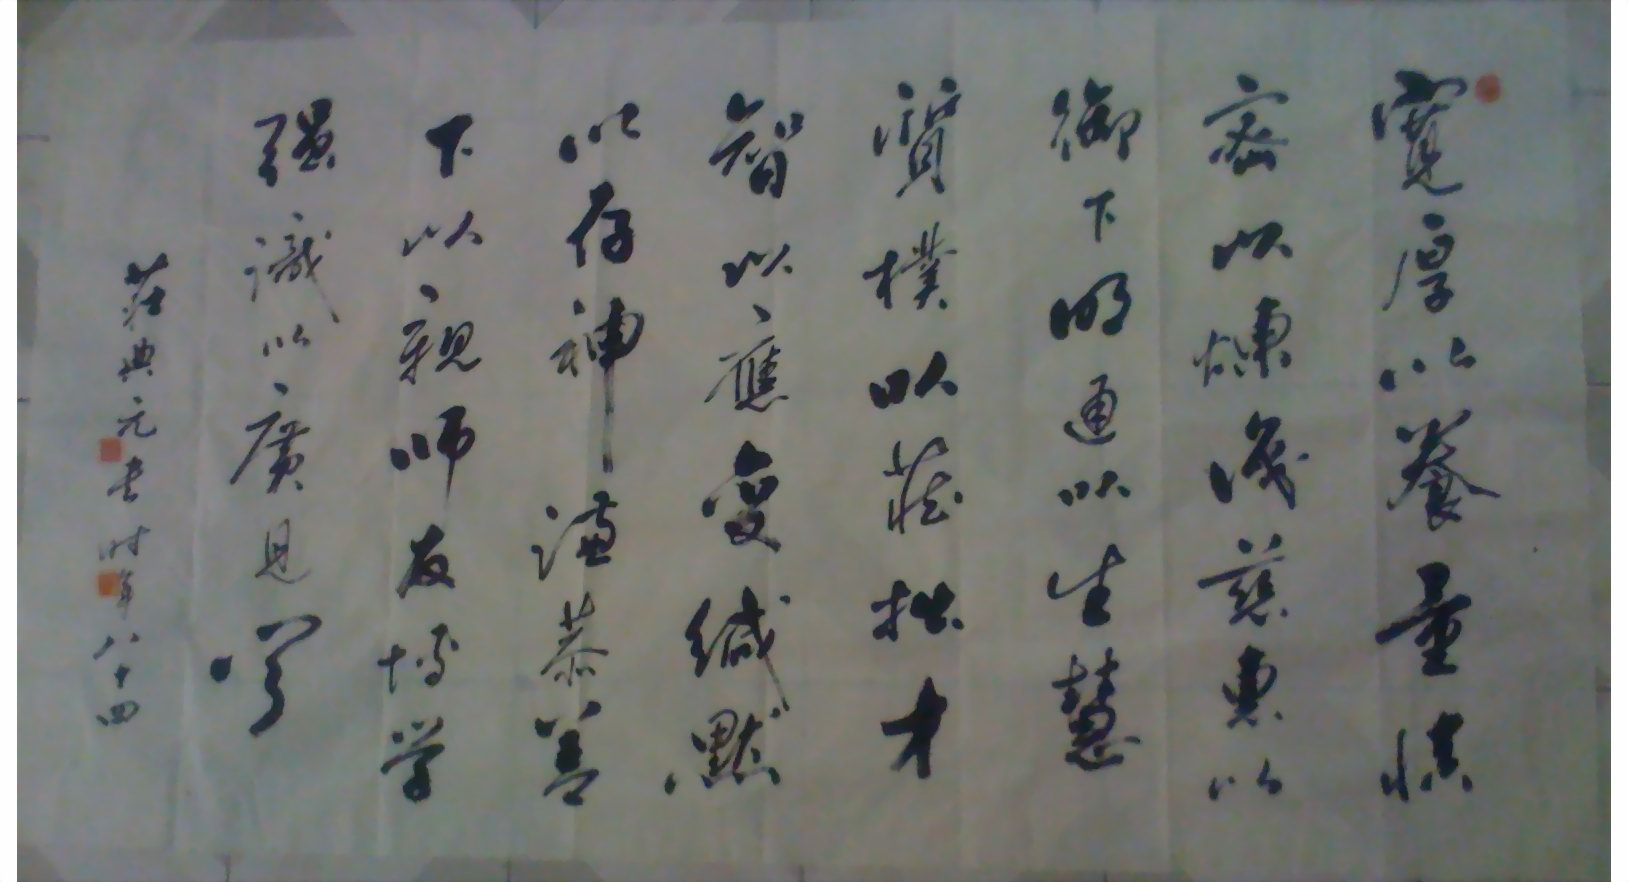 寬厚以養量慎
密以煉識慈惠以
御下明通以生慧
質樸以莊拙才
智以應變緘默
以存神謙恭善
下以親师友博学
强識以廣見
莊典元書时年八十四